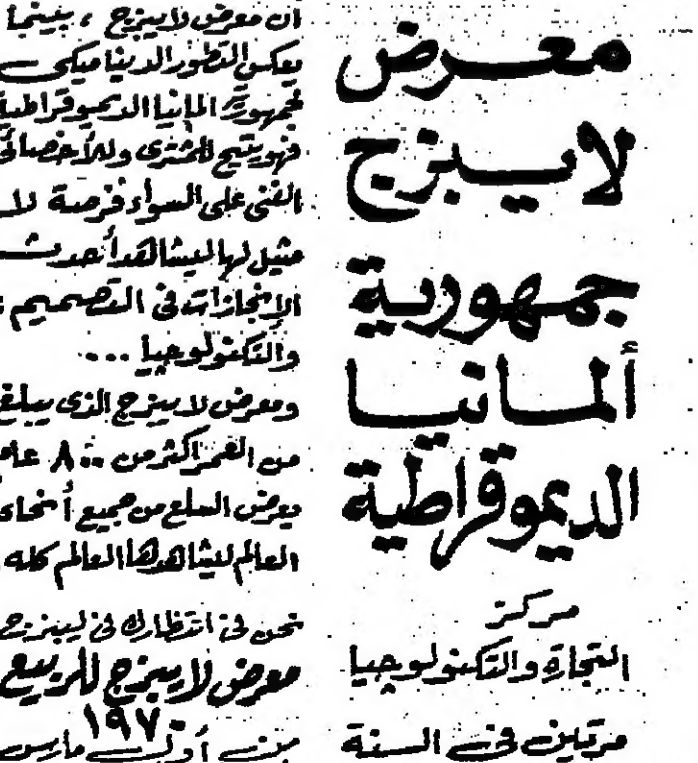 معرض
لايبزج
جمهورية
ألمانيا
الديموقراطية
مركز
التجارة والتكنولوجيا
مرتين في السنة
ان معرض لايبزج ، بينما
يعكس التطور الديناميكي
لجمهورية المانيا الديموقراطية
فهو يتيح للمشترى وللأخصائي
الفني على السواء فرصة لا
مثيل لها ليشاهد أحدث
الإنجازات في التصميم
والتكنولوجيا ...
ومعرض لايبزج الذى يبلغ
من العمر اكثر من ٨٠٠ عام
يعرض السلع من جميع أنحاء
العالم ليشاهدها العالم كله
نحن في انتظارك في ليبزج
معرض لايبزج للربيع
١٩٧٠
من أول مارس